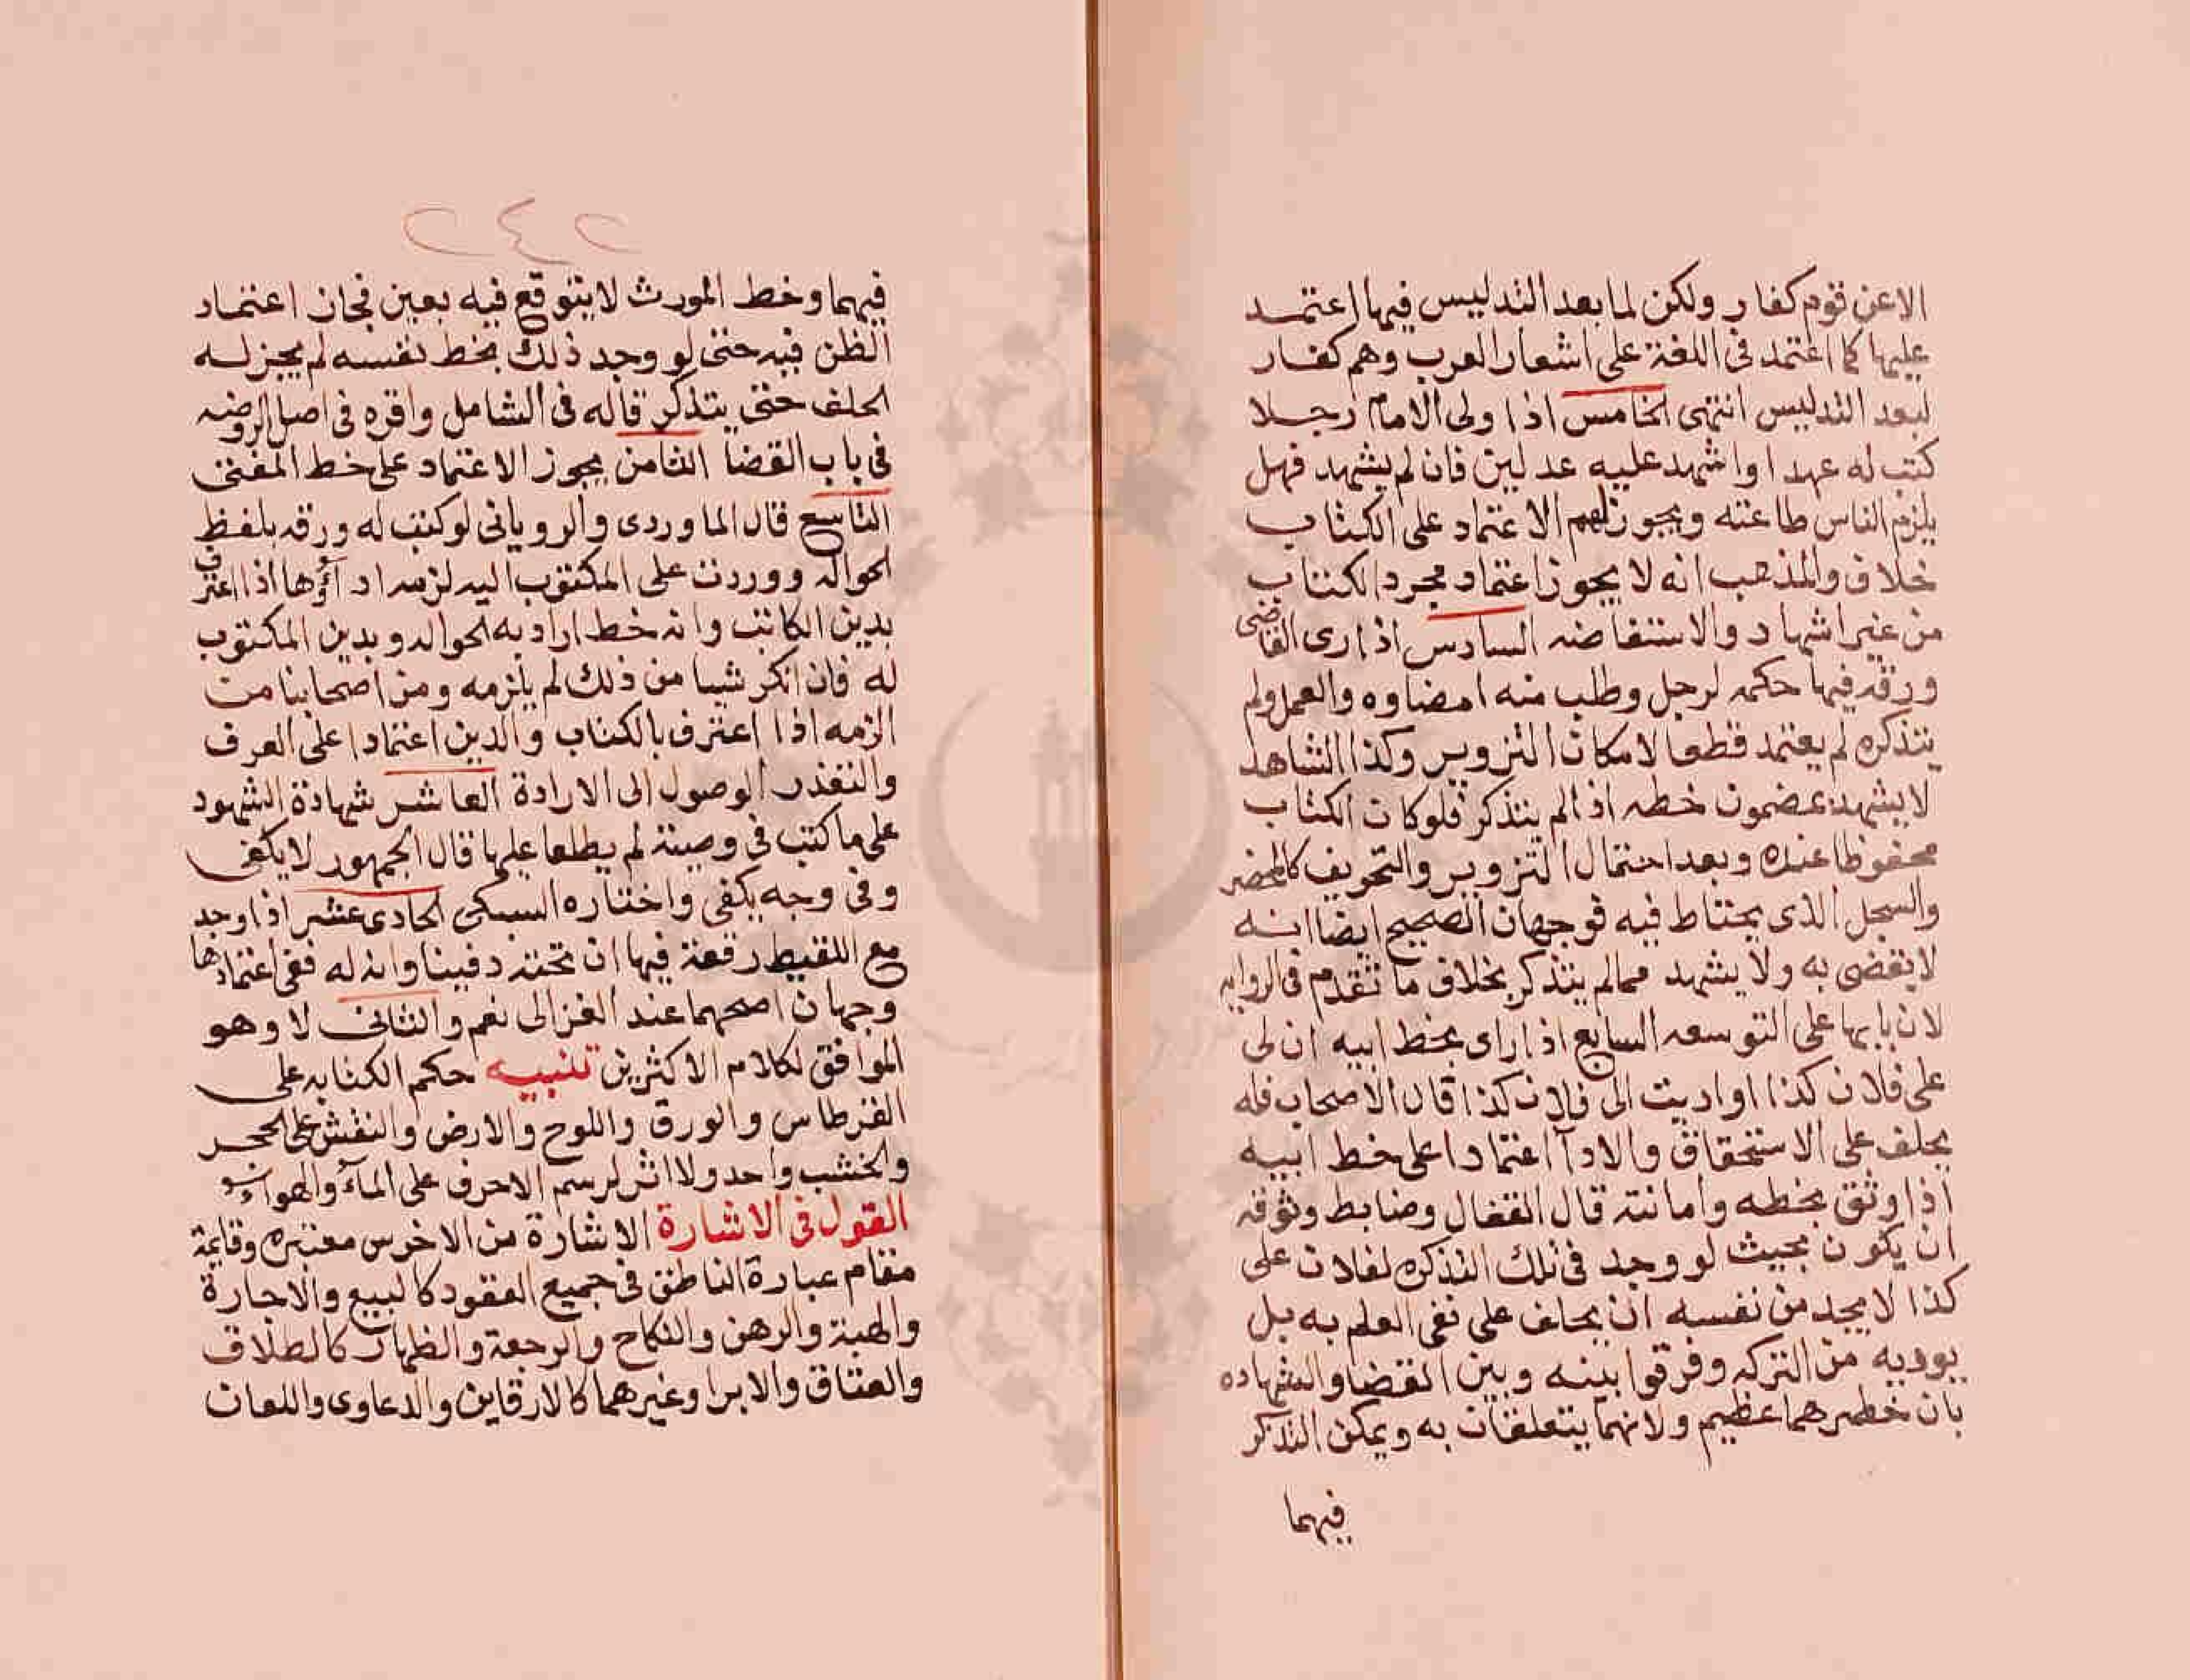 الاعن قوم كفار ولكن لما بعد التدليس فيها اعتمد
عليها كما اعتمد فى اللغة على اشعار العرب وهم كفار
لبعد التدليس انتهى الخامس اذا ولى الامام رجلا
كتب له عهدا واشهد عليه عدلين فان لم يشهد فهل
يلزم الناس طاعته ويجوز لهم الاعتماد على الكتاب
خلاف والمذهب انه لا يجوز اعتماد مجرد الكتاب
من غير اشهاد والاستفاضه السادس اذا راى القاضى
ورقة فيها حكمه لرجل وطلب منه امضاوه والعمل ولم
يتذكره لم يعتمد قطعا لامكان التزوير وكذا الشاهد
لا يشهد بمضمون خطه اذا لم يتذكر فلو كان الكتاب
محفوظا عنده وبعد احتمال التزوير والتحريف كالمحضر
والسجل الذى يحتاط فيه فوجهان الصحيح ايضا انه
لا يقضى به ولا يشهد مما لم يتذكر بخلاف ما تقدم فى الروايه
لان بابها على التوسعه السابع اذا راى بخط ابيه ان لى
على فلان كذا او اديت الى فلان كذا قال الاصحاب فله
يحلف على الاستحقاق والادآ اعتمادا على خط ابيه
اذا وثق بخطه وامانته قال القفال وضابط وثوقه
ان يكون بحيث لو وجد فى تلك التذكره لفلان على
كذا لا يجد من نفسه ان يحلف على نفى العلم به بل
يوديه من التركه وفرقوا بينه وبين القضا والشهاده
بان خطرهما عظيم ولانهما يتعلقان به ويمكن التذكر
فيهما
٢٤٢
فيهما وخط المورث لا يتوقع فيه يعين فجان اعتماد
الظن فيه حتى لو وجد ذلك بخط نفسه لم يجز له
الحلف حتى يتذكر قاله فى الشامل واقره فى اصل الروضه
فى باب القضا الثامن يجوز الاعتماد على خط المفتى
التاسع قال الماوردى والرويانى لو كتب له ورقه بلفظ
الحواله ووردت على المكتوب اليه لزمه ادآؤها اذا اعترف
بدين الكاتب وانه خط اراد به الحواله وبدين المكتوب
له فان انكر شيا من ذلك لم يلزمه ومن اصحابنا من
الزمه اذا اعترف بالكتاب والدين اعتمادا على العرف
والتعذر الوصول الى الارادة العاشر شهادة الشهود
على ما كتب فى وصية لم يطلعا عليها قال الجمهور لا يكفى
وفى وجه يكفى واختاره السبكى الحادى عشر اذا وجد
مع اللقيط رقعة فيها ان تحته دفينا وانه له ففى اعتمادها
وجهان اصحهما عند الغزالى نعم والثانى لا وهو
الموافق لكلام الاكثرين تنبيه حكم الكتابه على
القرطاس والورق واللوح والارض والنقش على الحجر
والخشب واحد ولا اثر لرسم الاحرف على المآ والهواء
القول فى الاشارة الاشارة من الاخرس معتبره وقايمة
مقام عبارة الناطق فى جميع العقود كالبيع والاجارة
والهبة والرهن والنكاح والرجعة والظهار كالطلاق
والعتاق والابرا وغيرهما كالارقاين والدعاوى واللعان